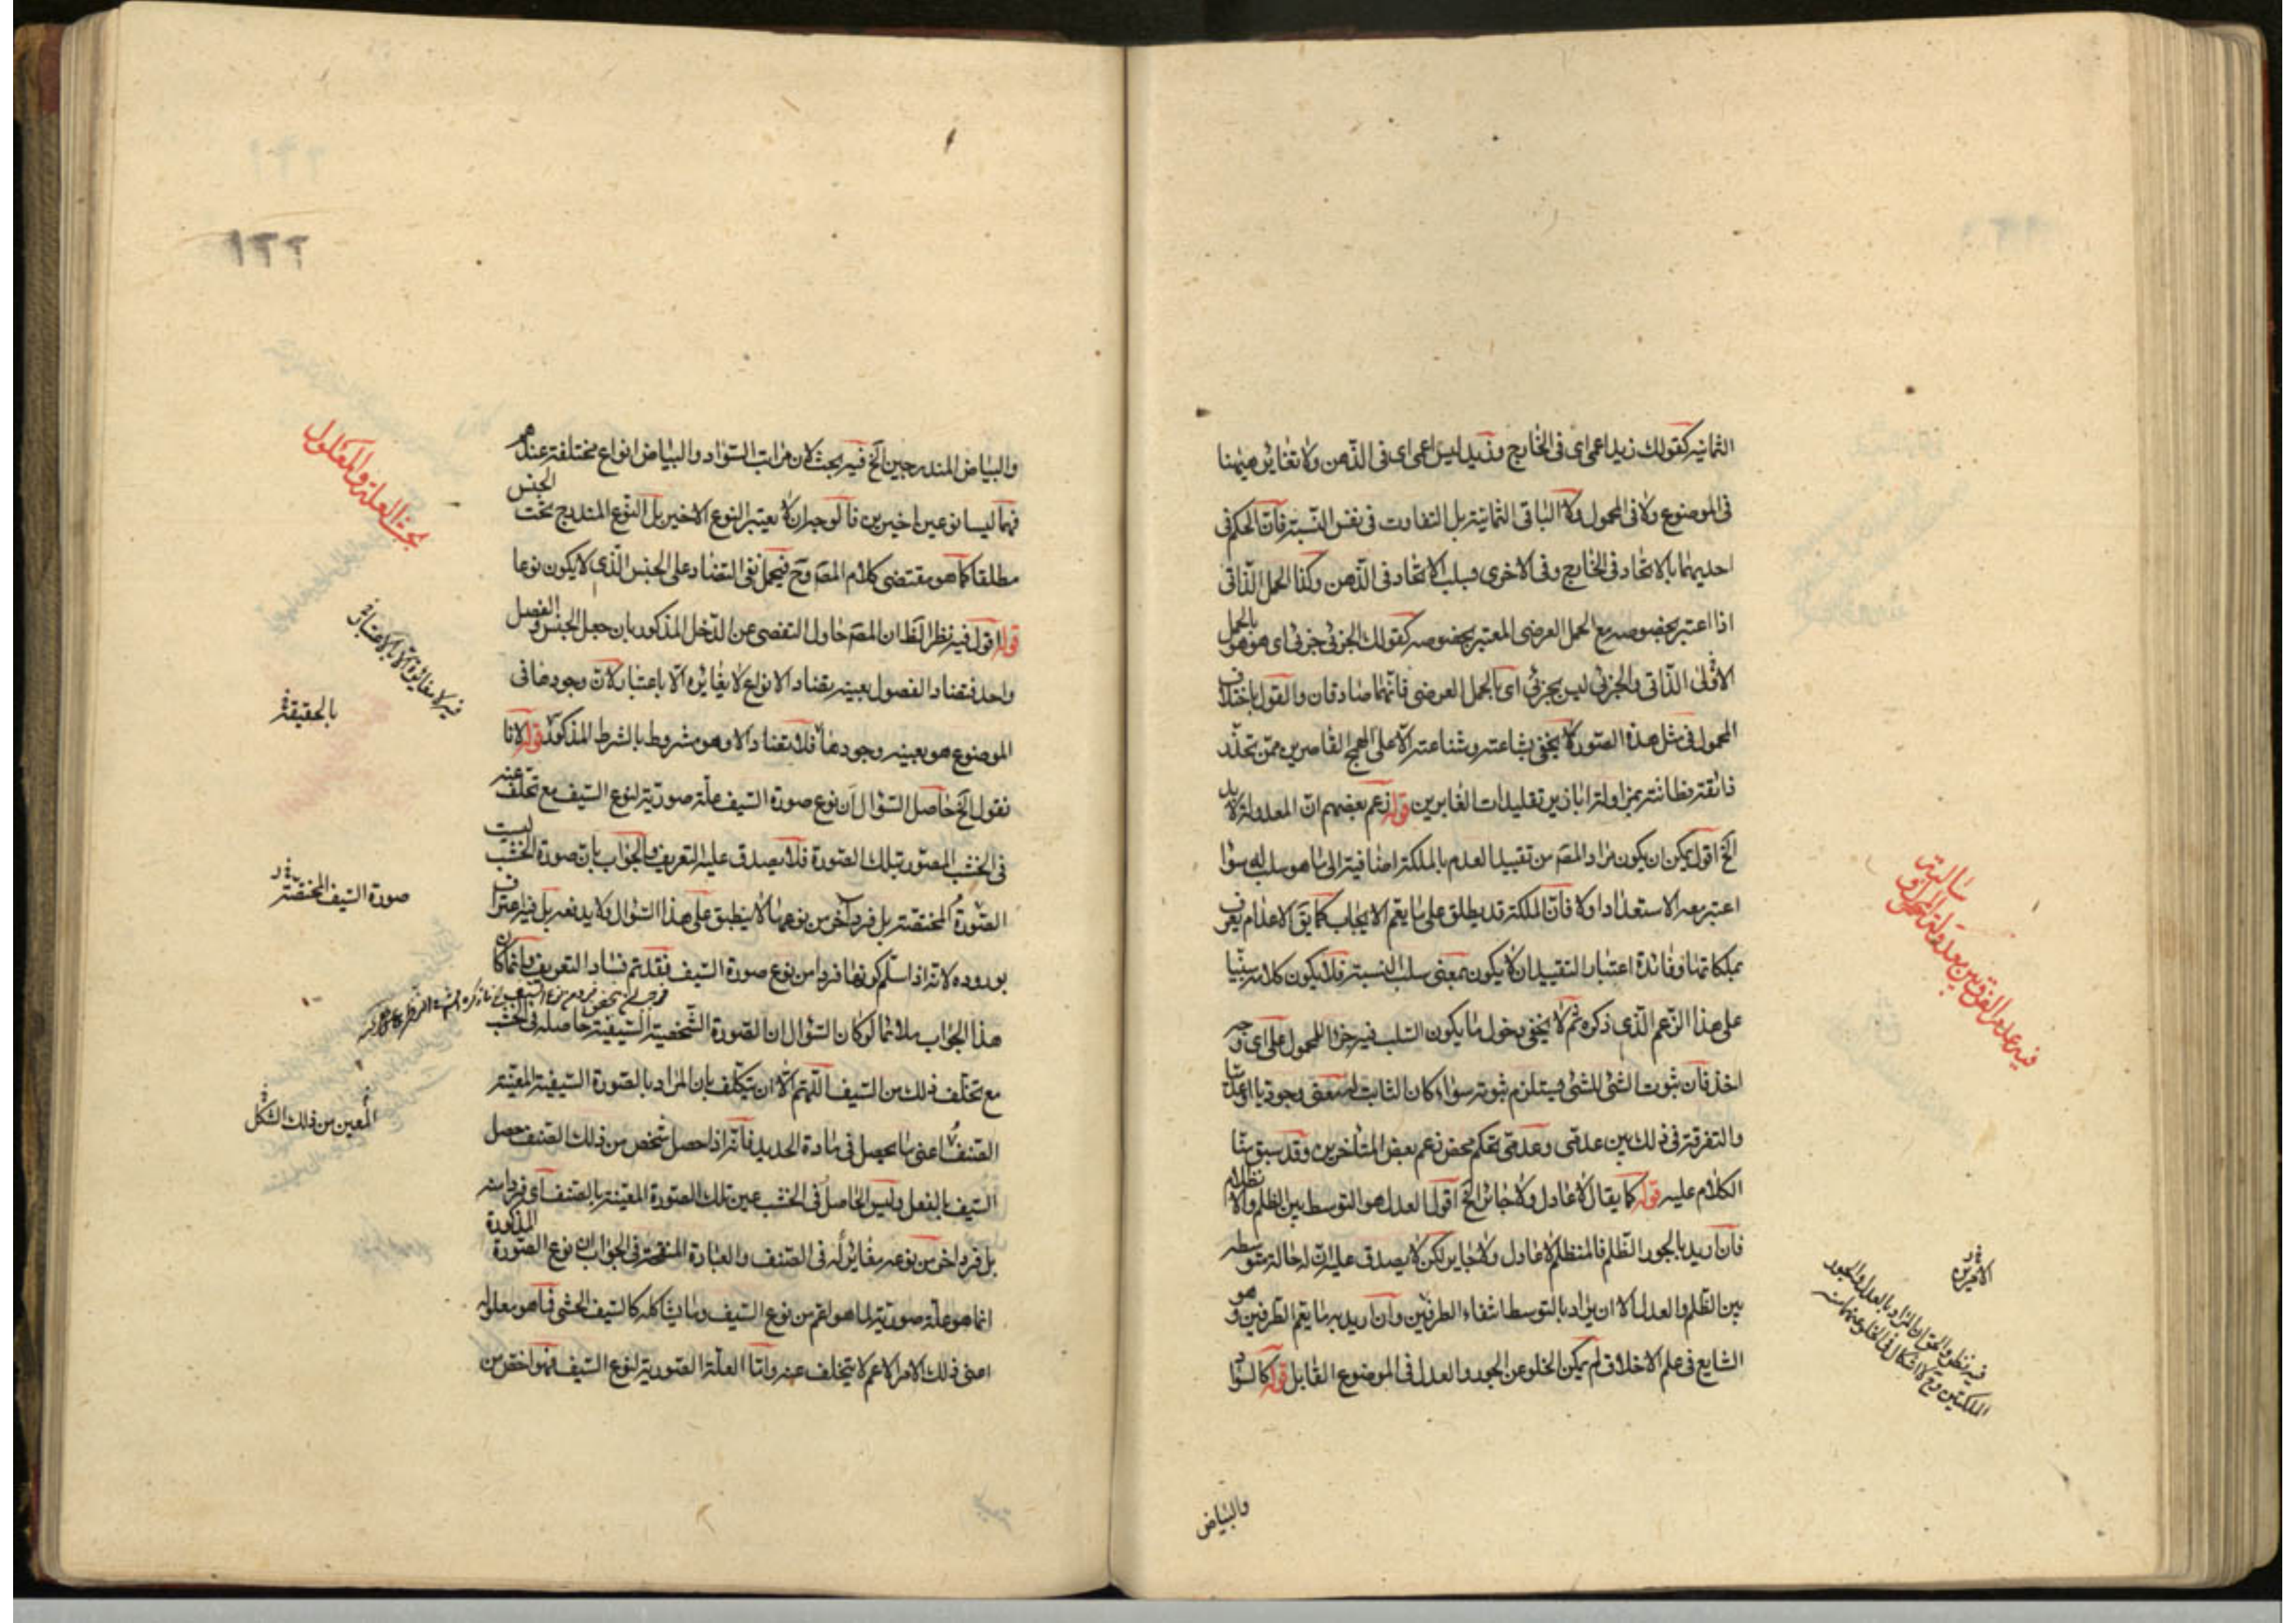 الثمانية كقولك زيد اعمى اى فى الخارج وزيد ليس اعمى اى فى الذهن ولا تغاير هيهنا
فى الموضوع ولا فى المحمول ولا الباقى الثمانية بل التفاوت فى نفس النسبة فان الحكم فى
احديهما بالاتحاد فى الخارج وفى الاخرى بسلب الاتحاد فى الذهن وكذا الحمل الذاتى
اذا اعتبر بخصوصه مع الحمل العرضى المعتبر بخصوصه كقولك الجزئى جزئى اى هو هو بالحمل
الاولى الذاتى والجزئى ليس بجزئى اى بالحمل العرضى فانهما صادقان والقول باختلاف
المحمول فى مثل هذه الصورة لا يخفى بشاعته وشناعته الا على الهمج القاصرين ممن
قوله زعم بعضهم ان المعدولة لا بد
الخ اقول يمكن ان يكون مراد المصه من تقييد العدم بالملكة اضافته الى ما هو سلب له سواء
اعتبر معه الاستعداد اولا فان الملكة قد يطلق على ما يعم الايجاب كما يق الاعدام يعرف
بملكاتها وفائدة اعتبار التقييد ان لا يكون بمعنى سلب النسبة فلا يكون كلامه مبنيا
على هذا الزعم الذى ذكره ثم لا يخفى دخول ما يكون السلب فيه جزء المحمول على اى وجه
اخذ فان ثبوت الشئ للشئ يستلزم ثبوته سواء كان الثابت له معنى وجوديا او عدميا
والتفرقة فى ذلك بين عدمى وعدمى تحكم محض زعم بعض المتاخرين وقد سبق منا
الكلام عليه قوله كما يقال لا عادل ولا جائر الخ اقول العدل هو التوسط بين الظلم والانظلام
فان اريد بالجور الظلم فالمنظلم لا عادل ولا جاير لكن لا يصدق عليه ان له حالة متوسطة
بين الظلم والعدل الا ان يراد بالتوسط انتفاء الطرفين وان اريد به ما يعم الطرفين وهو
الشايع فى علم الاخلاق لم يكن الخلو عن الجور والعدل فى الموضوع القابل قوله كالسواد
والبياض
فيه عدم الفرق بين معدولة المحمول و
سالبته
الامرين
فيه نظر والحق ان المراد بالعدل والجور
الملكتين وح لا اشكال فى الخلو عنهما منه
١٢٢
والبياض المندرجين الخ فيه بحث لان مراتب السواد والبياض انواع مختلفة عندهم
فهما ليسا نوعين اخيرين فالوجه ان لا يعتبر النوع الاخير بل النوع المندرج تحت الجنس
مطلقا كما هو مقتضى كلام المصه وح فيحمل نفى التضاد على الجنس الذى لا يكون نوعا
قوله اقول فيه نظر الظ ان المصه حاول التفصى عن الدخل المذكور بان جعل الجنس والفصل
واحد فتضاد الفصول بعينه تضاد الانواع لا يغايره الا باعتبار لان وجودها فى
الموضوع هو بعينه وجودها فلا تضاد الا وهو مشروط بالشرط المذكور قوله لانا
نقول الخ حاصل السؤال ان نوع صورة السيف علة صورية لنوع السيف مع تخلفه عنه
فى الخشب المصور بتلك الصورة فلا يصدق عليه التعريف والجواب بان صورة الخشب ليست
الصورة المختصة بل فرد اخر من نوعها لا ينطبق على هذا السؤال ولا يدفعه بل فيه اعتراف
بوروده لانه اذا سلم كونها فردا من نوع صورة السيف فقد تم فساد التعريف وانما كان
هذا الجواب ملائما لو كان السؤال ان الصورة الشخصية السيفية حاصلة فى الخشب
مع تخلف ذلك من السيف اللهم الا ان يتكلف بان المراد بالصورة السيفية المعينة
الصنف اعنى ما يحصل فى مادة الحديد فانه اذا حصل شخص من ذلك الصنف حصل
السيف بالفعل وليس الحاصل فى الخشب عين تلك الصورة المعينة بالصنف اى فردا منه
بل فرد اخر من نوعه مغاير له فى الصنف والعبارة المنقحة فى الجواب ان نوع الصورة المذكورة
انما هو علة صورية لما هو اعم من نوع السيف وما يشاكله كالسيف الخشبى فما هو معلوله
اعنى ذلك الامر الاعم لا يتخلف عنه واما العلة الصورية لنوع السيف فهو اخص من
بحث العلة والمعلول
فيه لا مغايرة الا بالاعتبار
بالحقيقة
صورة السيف المختصة
المعين من ذلك الشكل